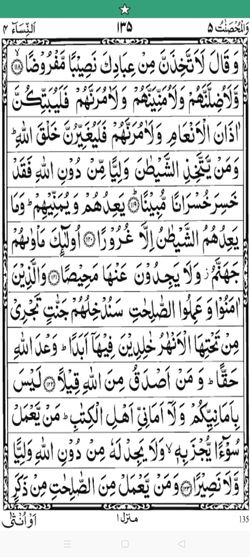 وَالْمُحْصَنٰتُ ٥ ١٣٥ اَلنِّسَآء ٤
وَ قَالَ لَاَتَّخِذَنَّ مِنْ عِبَادِكَ نَصِيْبًا مَّفْرُوْضًا ۙ ﴿١١٨﴾
وَّلَاُضِلَّنَّهُمْ وَلَاُمَنِّيَنَّهُمْ وَلَاٰمُرَنَّهُمْ فَلَيُبَتِّكُنَّ
اٰذَانَ الْاَنْعَامِ وَلَاٰمُرَنَّهُمْ فَلَيُغَيِّرُنَّ خَلْقَ اللهِ ؕ
وَمَنْ يَّتَّخِذِ الشَّيْطٰنَ وَلِيًّا مِّنْ دُوْنِ اللهِ فَقَدْ
خَسِرَ خُسْرَانًا مُّبِيْنًا ؕ ﴿١١٩﴾ يَعِدُهُمْ وَ يُمَنِّيْهِمْ ؕ وَمَا
يَعِدُهُمُ الشَّيْطٰنُ اِلَّا غُرُوْرًا ﴿١٢٠﴾ اُولٰٓئِكَ مَاْوٰىهُمْ
جَهَنَّمُ ۫ وَلَا يَجِدُوْنَ عَنْهَا مَحِيْصًا ﴿١٢١﴾ وَالَّذِيْنَ
اٰمَنُوْا وَ عَمِلُوا الصّٰلِحٰتِ سَنُدْخِلُهُمْ جَنّٰتٍ تَجْرِيْ
مِنْ تَحْتِهَا الْاَنْهٰرُ خٰلِدِيْنَ فِيْهَاۤ اَبَدًا ؕ وَعْدَ اللهِ
حَقًّا ؕ وَ مَنْ اَصْدَقُ مِنَ اللهِ قِيْلًا ﴿١٢٢﴾ لَيْسَ
بِاَمَانِيِّكُمْ وَ لَاۤ اَمَانِيِّ اَهْلِ الْكِتٰبِ ؕ مَنْ يَّعْمَلْ
سُوْٓءًا يُّجْزَ بِهٖ ۙ وَلَا يَجِدْ لَهٗ مِنْ دُوْنِ اللهِ وَلِيًّا
وَّلَا نَصِيْرًا ﴿١٢٣﴾ وَمَنْ يَّعْمَلْ مِنَ الصّٰلِحٰتِ مِنْ ذَكَرٍ
اَوْ اُنْثٰى منزل ١ 135